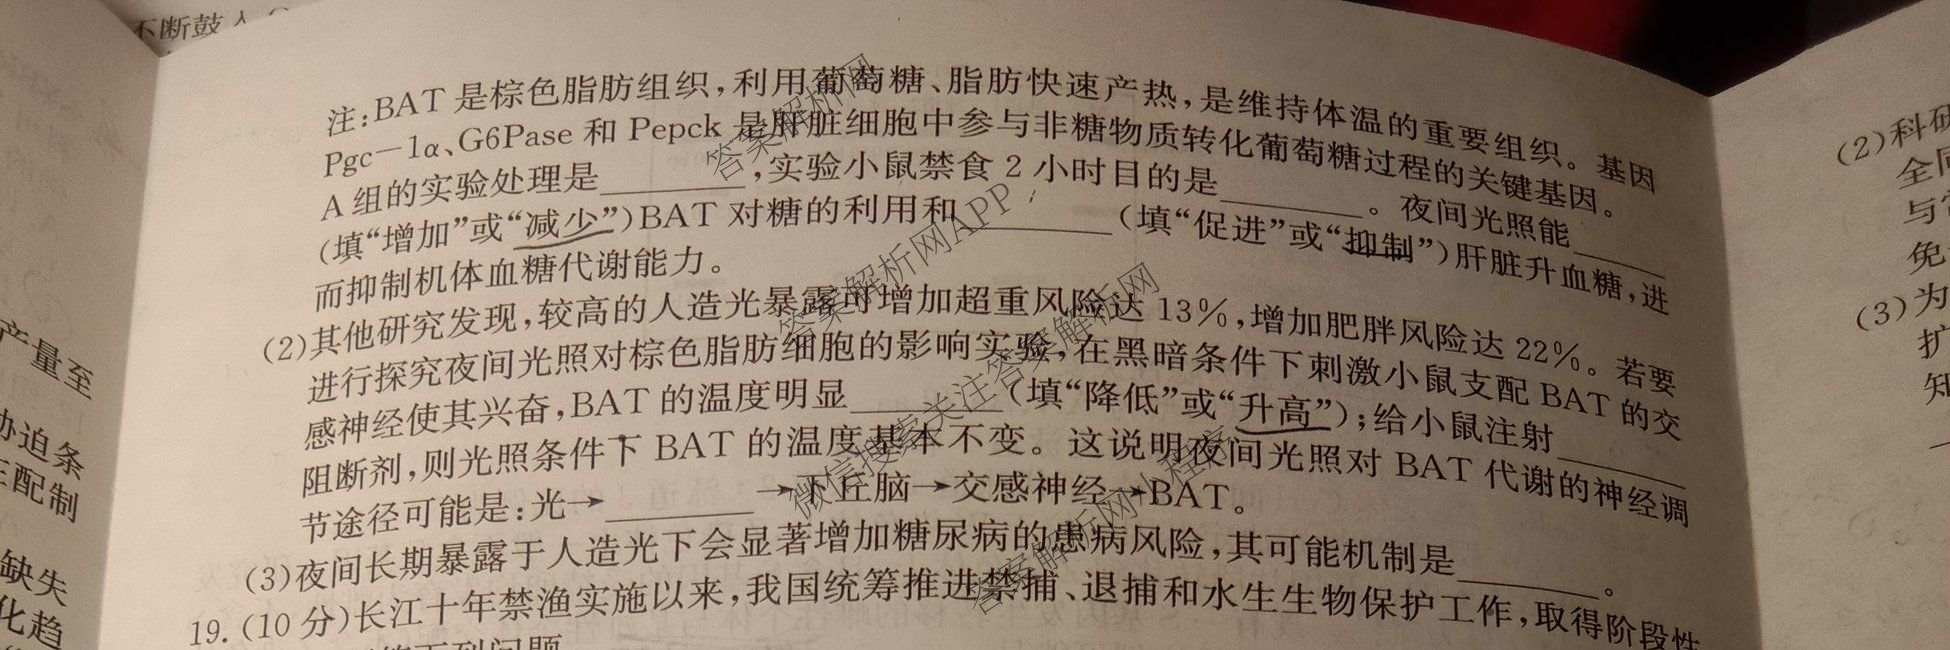 不断鼓人
注:BAT 是棕色脂肪组织,利用葡萄糖、脂肪快速产热,是维持体温的重要组织。基因
Pgc-1α、G6Pase 和 Pepck 是肝脏细胞中参与非糖物质转化葡萄糖过程的关键基因。
A 组的实验处理是________,实验小鼠禁食 2 小时目的是________。夜间光照能________
(填“增加”或“减少”)BAT 对糖的利用和________(填“促进”或“抑制”)肝脏升血糖,进
而抑制机体血糖代谢能力。
(2)其他研究发现,较高的人造光暴露可增加超重风险达 13%,增加肥胖风险达 22%。若要
进行探究夜间光照对棕色脂肪细胞的影响实验,在黑暗条件下刺激小鼠支配 BAT 的交
感神经使其兴奋,BAT 的温度明显________(填“降低”或“升高”);给小鼠注射________
阻断剂,则光照条件下 BAT 的温度基本不变。这说明夜间光照对 BAT 代谢的神经调
节途径可能是:光→________→下丘脑→交感神经→BAT。
(3)夜间长期暴露于人造光下会显著增加糖尿病的患病风险,其可能机制是________。
19.(10 分)长江十年禁渔实施以来,我国统筹推进禁捕、退捕和水生生物保护工作,取得阶段性
下列问题
产量至
胁迫条
配制
缺失
化趋
(2)科研
全
与
免
(3)为
扩
知
答案解析网
答案解析网APP
答案解析网
微信搜索关注答案解析网
答案解析网小程序